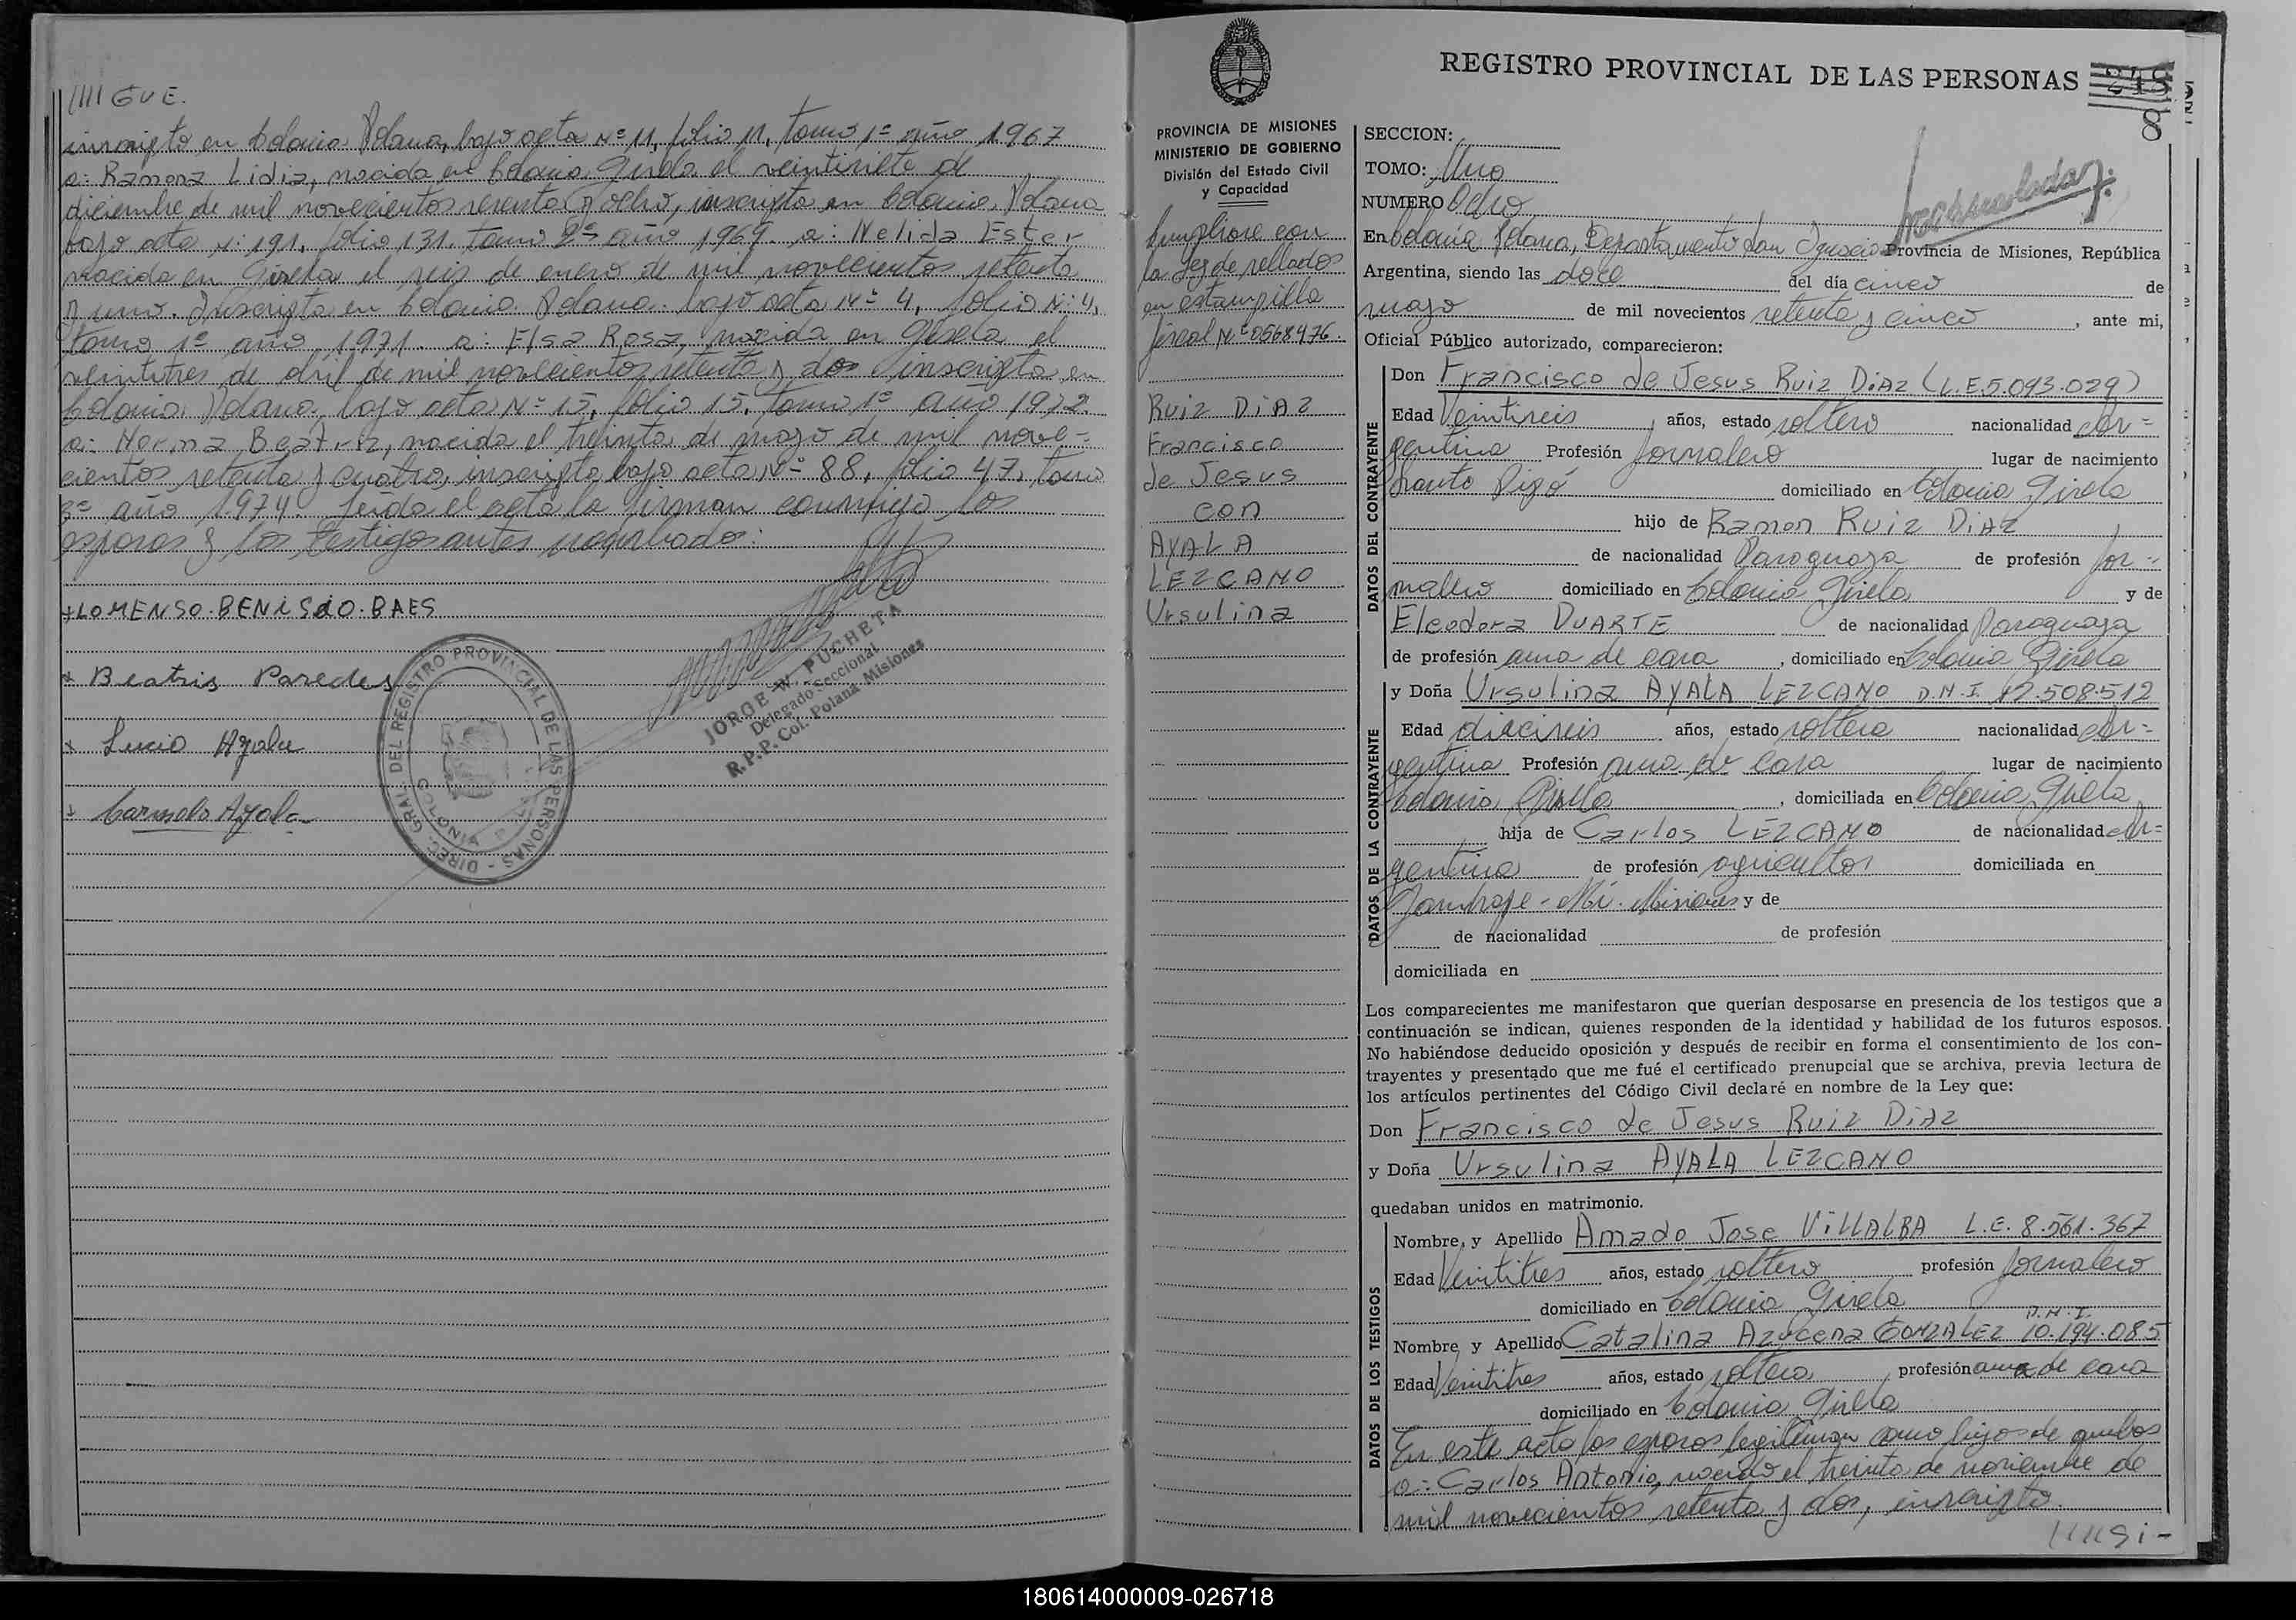 ////GUE.
inscripto en Colonia Polana, bajo acta Nº 11, folio 11, tomo 1º año 1967
a: Ramona Lidia, nacida en Colonia Gisela el veintisiete de
diciembre de mil novecientos sesenta y ocho, inscripta en Colonia Polana
bajo acta Nº 191, folio 131, tomo 2º año 1969. a: Nelida Ester
nacida en Gisela el seis de enero de mil novecientos setenta
y uno. Inscripta en Colonia Polana bajo acta Nº 4, folio Nº 4,
tomo 1º año 1971. a: Elsa Rosa, nacida en Gisela el
veintitres de abril de mil novecientos setenta y dos inscripta en
Colonia Polana, bajo acta Nº 15, folio 15, tomo 1º año 1972.
a: Norma Beatriz, nacida el treinta de mayo de mil nove-
cientos setenta y cuatro, inscripta bajo acta Nº 88, folio 47, tomo
3º año 1974. Leída el acta la firman conmigo los
esposos y los testigos antes nombrados:
+LOMENSO.BENISDO.BAES
x Beatris Paredes
x Lucio Ayala
+ Carmelo Ayala
DIREC. GRAL. DEL REGISTRO PROVINCIAL DE LAS PERSONAS
JORGE W. PUCHETA
Delegado Seccional
R.P.P. Col. Polana-Misiones
REGISTRO PROVINCIAL DE LAS PERSONAS 248
8
PROVINCIA DE MISIONES
MINISTERIO DE GOBIERNO
División del Estado Civil
y Capacidad
Cumpliose con
la Ley de sellados
en estampilla
fiscal Nº 0568476.
Ruiz DiAZ
Francisco
de Jesus
con
AYALA
LEZCANO
Ursulina
SECCION:
TOMO: Uno
NUMERO Ocho
En Colonia Polana, Departamento San Ignacio Provincia de Misiones, República
Argentina, siendo las doce del día cinco de
mayo de mil novecientos setenta y cinco, ante mi,
Oficial Público autorizado, comparecieron:
DATOS DEL CONTRAYENTE
Don Francisco de Jesus Ruiz DiAZ (L.E.5.093.029)
Edad Veintiseis años, estado soltero nacionalidad Ar=
gentina Profesión Jornalero lugar de nacimiento
Santo Pipó domiciliado en Colonia Gisela
hijo de Ramon Ruiz DiAZ
de nacionalidad Paraguaya de profesión Jor=
nalero domiciliado en Colonia Gisela y de
Eleodora DUARTE de nacionalidad Paraguaya
de profesión ama de casa, domiciliado en Colonia Gisela
DATOS DE LA CONTRAYENTE
y Doña Ursulina AYALA LEZCANO D.N.I. 12.508.512
Edad dieciseis años, estado soltera nacionalidad Ar=
gentina Profesión ama de casa lugar de nacimiento
Colonia Gisela, domiciliada en Colonia Gisela
hija de Carlos LEZCANO de nacionalidad Ar=
gentina de profesión agricultor domiciliada en
Yamhape-Mí-Misiones y de
de nacionalidad de profesión
domiciliada en
Los comparecientes me manifestaron que querían desposarse en presencia de los testigos que a
continuación se indican, quienes responden de la identidad y habilidad de los futuros esposos.
No habiéndose deducido oposición y después de recibir en forma el consentimiento de los con-
trayentes y presentado que me fué el certificado prenupcial que se archiva, previa lectura de
los artículos pertinentes del Código Civil declaré en nombre de la Ley que:
Don Francisco de Jesus Ruiz DiAZ
y Doña Ursulina AYALA LEZCANO
quedaban unidos en matrimonio.
DATOS DE LOS TESTIGOS
Nombre y Apellido Amado Jose ViLLALBA L.E. 8.561.367
Edad Veintitres años, estado soltero profesión Jornalero
domiciliado en Colonia Gisela
Nombre y Apellido Catalina Azucena GONZALEZ D.N.I. 10.194.085
Edad Veintitres años, estado soltera profesión ama de casa
domiciliado en Colonia Gisela
En este acto los esposos legitiman como hijos de ambos
a: Carlos Antonio, nacido el treinta de noviembre de
mil novecientos setenta y dos, inscripto
////Si-
180614000009-026718